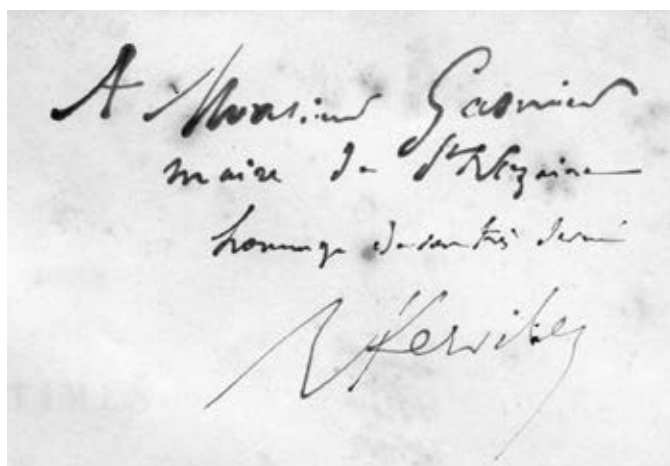 A Monsieur Gasnier
maire de St Nazaire
hommage de son très dévoué
R Kerviler